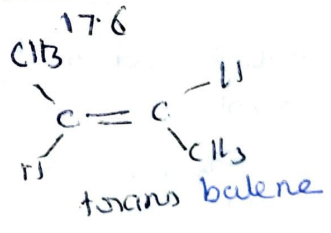 17.6
CH3
H
C = C
H
CH3
trans butene